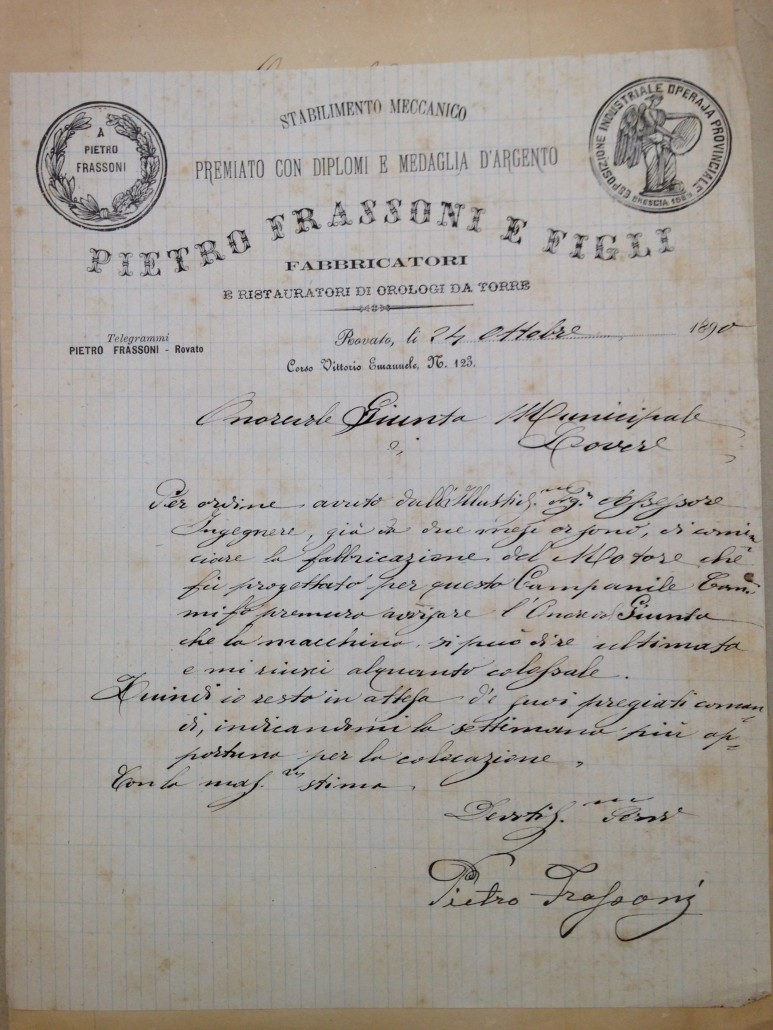 A
PIETRO
FRASSONI
STABILIMENTO MECCANICO
PREMIATO CON DIPLOMI E MEDAGLIA D'ARGENTO
ESPOSIZIONE INDUSTRIALE OPERAJA PROVINCIALE
BRESCIA
PIETRO FRASSONI E FIGLI
FABBRICATORI
E RISTAURATORI DI OROLOGI DA TORRE
Telegrammi
PIETRO FRASSONI - Rovato
Rovato, li 24 Ottobre 1890
Corso Vittorio Emanuele, N. 123.
Onorevole Giunta Municipale
Lovere
Per ordine avuto dall' Illustris.mo Sig.r Assessore
Ingegnere, già due mesi or sono, di comin-
ciare la fabbricazione del Motore che
fu progettato per questo Campanile
mi fo premura avvisare l'Onorevol Giunta
che la macchina si può dire ultimata
e mi riusci alquanto colossale.
Quindi io resto in attesa de' suoi pregiati coman-
di, indicandomi la settimana più op-
portuna per la colocazione.
Con la mas. stima
Devotis.mo Servo
Pietro Frassoni